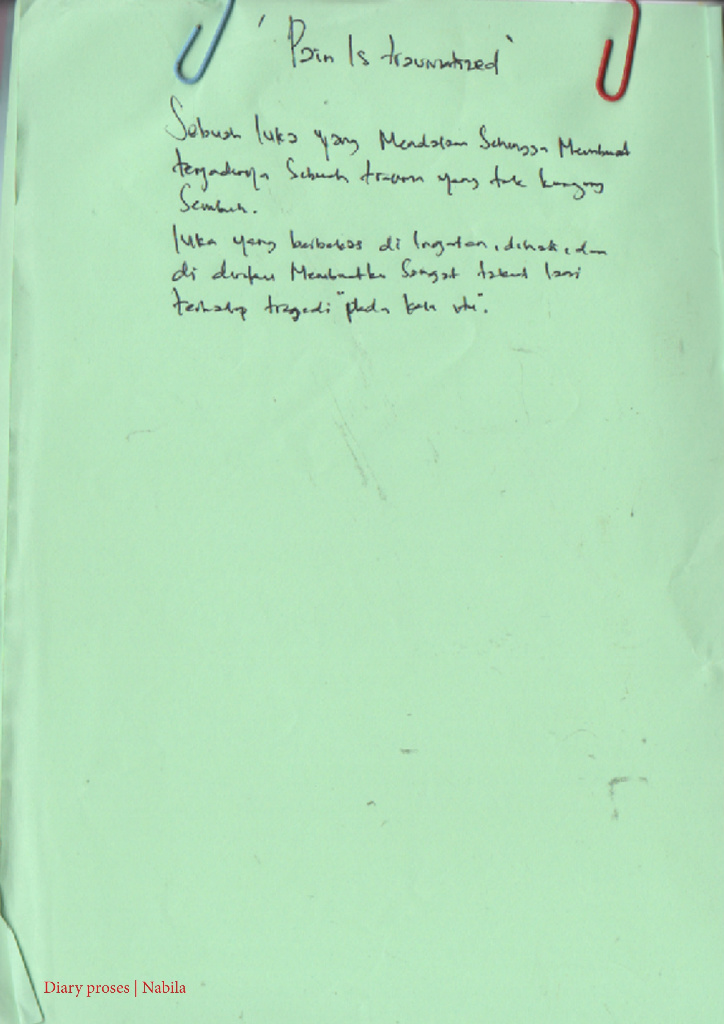 'Pain Is traumatized'
Sebuah luka yang Mendalam Sehingga Membuat
terjadinya Sebuah trauma yang tak kunjung
Sembuh.
luka yang berbekas di Ingatan, dihati, dan
di diriku Membuatku Sangat takut lari
terhadap tragedi "pada kala itu".
Diary proses | Nabila